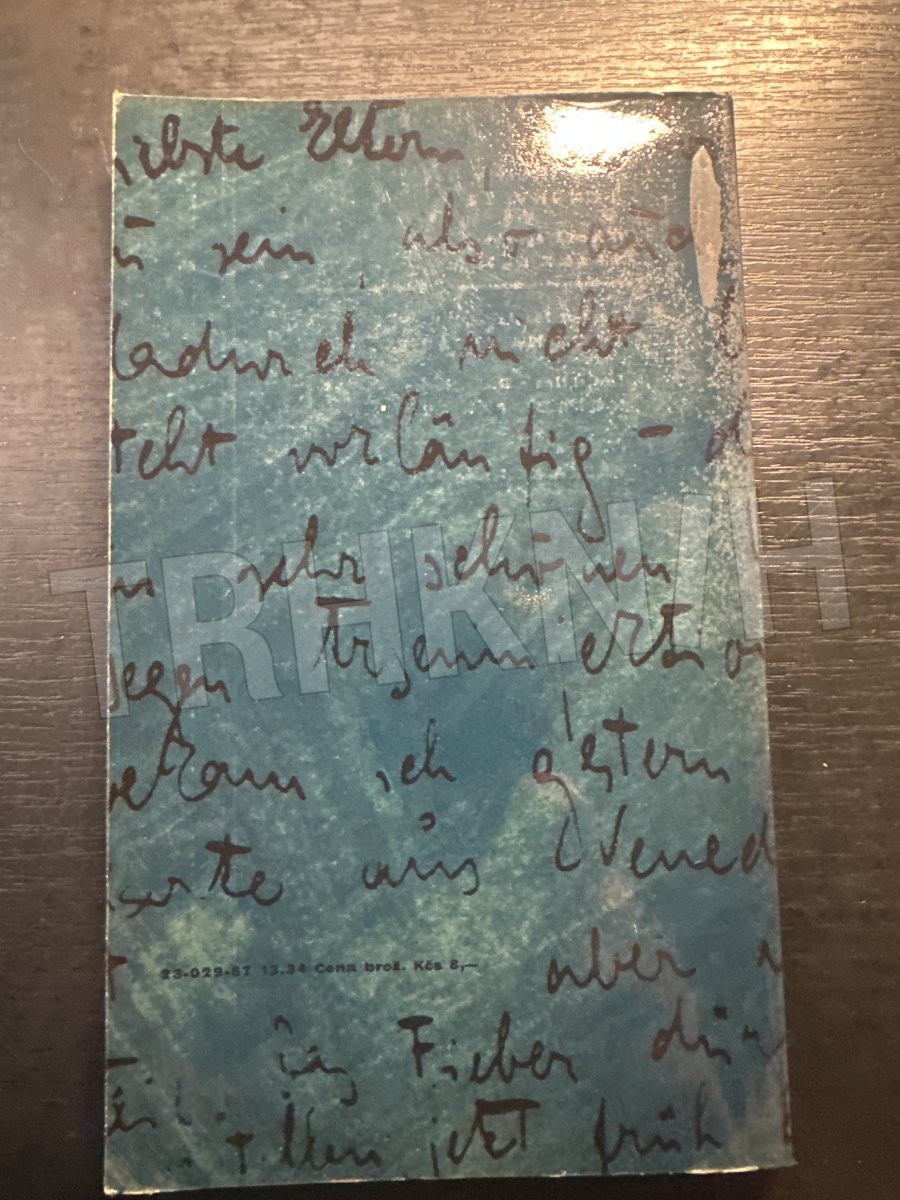 iebste Eltern,
ü sein, also auc
dadurch nicht
teht vorläufig - d
in sehr schönen
wegen
bekam ich gestern
Karte aus Vened
aber
23-029-67 13.34 Cena brož. Kčs 8,—
Fieber dür
jetzt früh
TRHKNIH